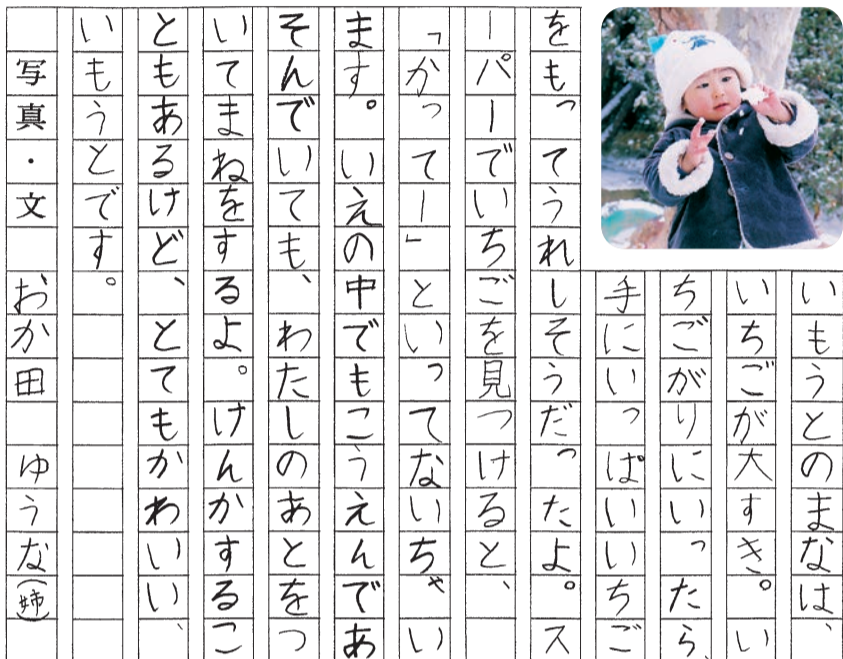 いもうとのまなは、
いちごが大すき。い
ちごがりにいったら、
手にいっぱいいちご
をもってうれしそうだったよ。ス
ーパーでいちごを見つけると、
「かってー」といってないちゃい
ます。いえの中でもこうえんであ
そんでいても、わたしのあとをつ
いてまねをするよ。けんかするこ
ともあるけど、とてもかわいい、
いもうとです。
写真・文　おか田　ゆうな(姉)